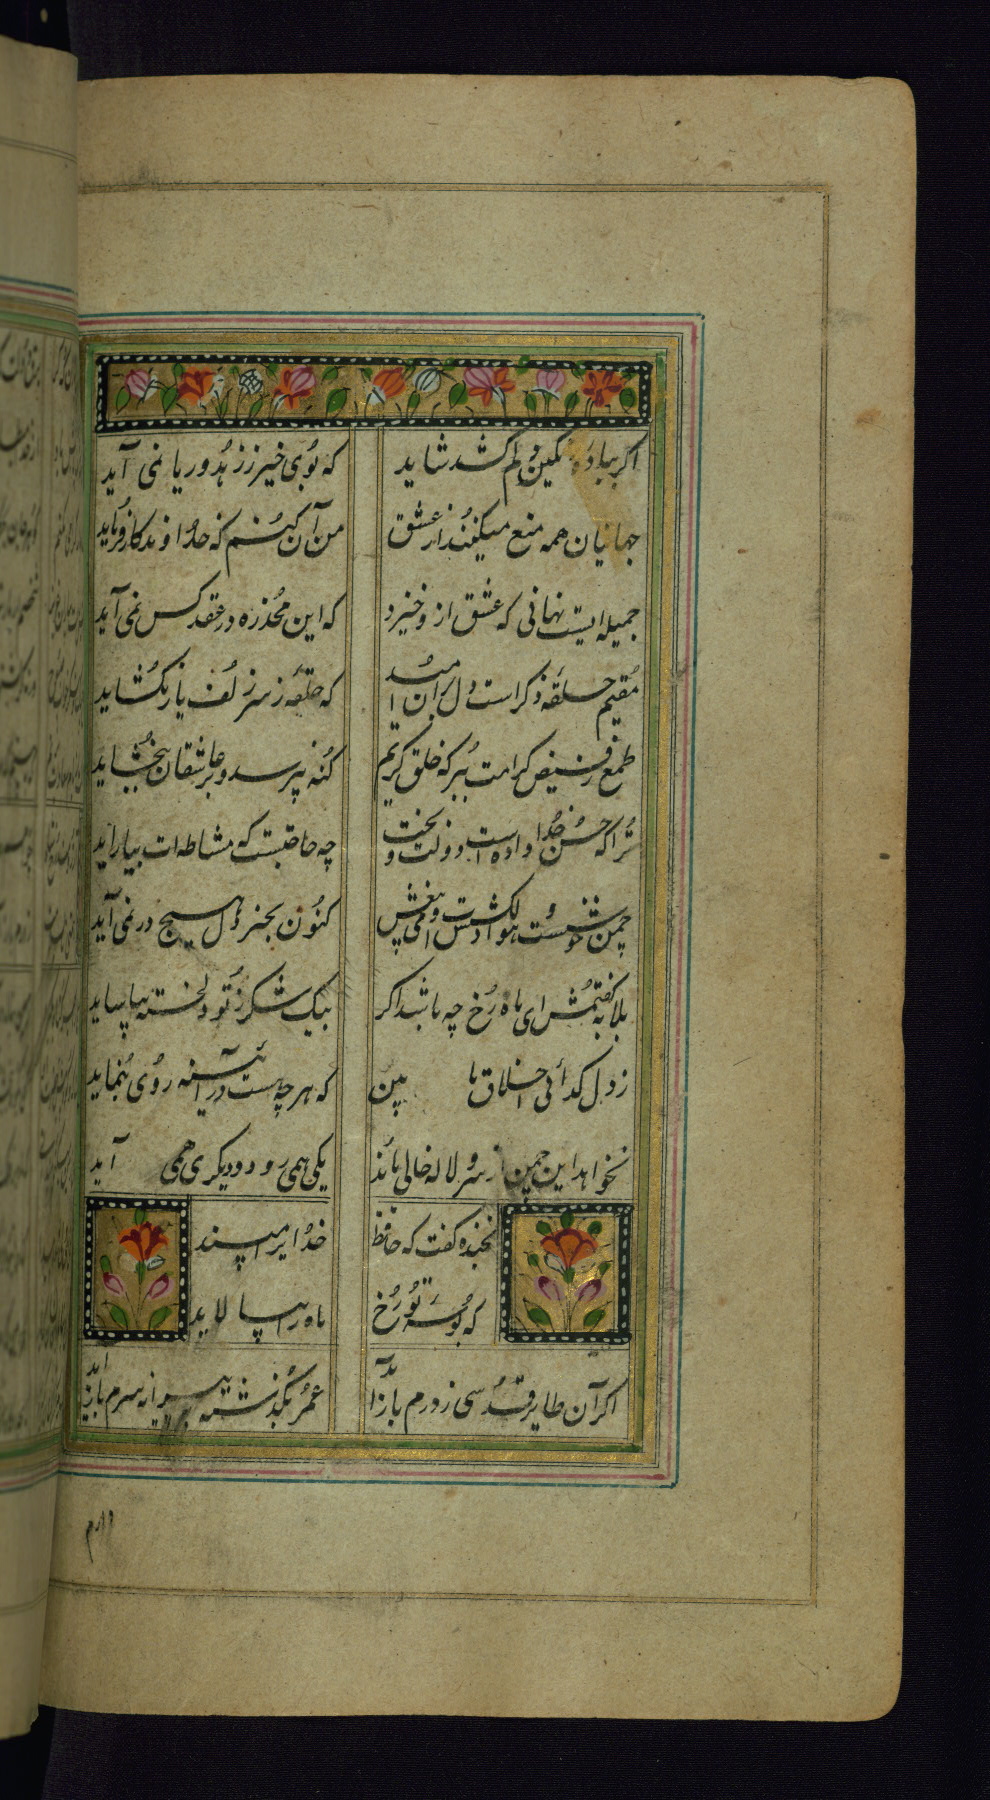 اکر بباده مشکین دلم کشد شاید
که بوی خیر ز زهد و ریا نمی آید
جهانیان همه منع میکنند از عشق
من آن کنم که خداوندکار فرماید
جمیله ایست نهانی که عشق از و خیزد
که این مخدره در عقد کس نمی آید
مقیم حلقه ذکر است دل بران امید
که حلقه ز سر زلف یار بکشاید
طمع ز فیض کرامت مبر که خلق کریم
کنه پرسد و بر عاشقان ببخشاید
ترا که حسن خدا داده است و دولت و بخت
چه حاجتست که مشاطه ات بیاراید
چمن خوشست و هوا دلکشست و می بیغش
کنون بجز دل هیچ در نمی آید
بلابه کفتمش ای ماه رخ چه باشد اکر
بیک شکر ز تو دلخسته بیاساید
ز دل کدائی اخلاق ما ببین
که هر چه هست در آئینه روی بنماید
نخواهد این چمن از سرو لاله خالی ماند
یکی همی رود و دیکری همی آید
بخنده کفت که حافظ
خدایرا مپسند
که بوسه تو رخ
ماه را بیالاید
اکر آن طایر قدسی ز درم باز آید
عمر بکذشته به پیرانه سرم باز آید